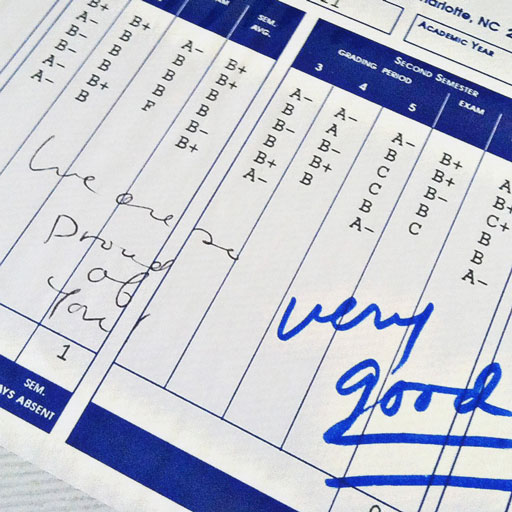 harlotte, NC 2
21
ACADEMIC YEAR
SEM. AVG.
SECOND SEMESTER
GRADING PERIOD
3 4 5 EXAM
B+ B B B B+ B
B+ B B B B F
A- B B B B- B+
B+ B+ B B
A- B B- B B+ A-
A- A B- B+ B
A- B C C B A-
B+ B+ B- B C
A B+ C+ B B A-
We are so
proud
of
you!
very
good
1
SEM.
YS ABSENT